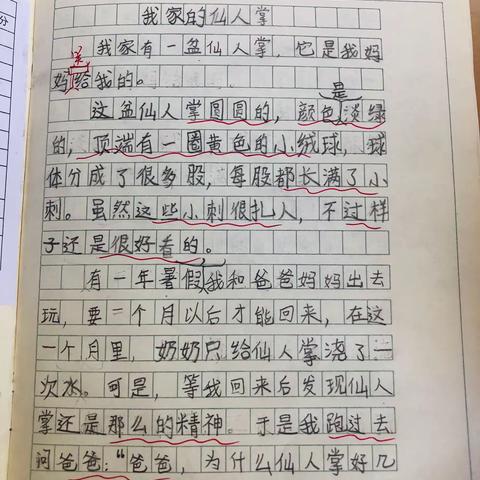 分
我家的仙人掌
我家有一盆仙人掌，它是我妈
妈给我的。
是
这盆仙人掌圆圆的，颜色淡绿
的，顶端有一圈黄色的小绒球，球
体分成了很多股，每股都长满了小
刺。虽然这些小刺很扎人，不过样
子还是很好看的。
有一年暑假我和爸爸妈妈出去
玩，要一个月以后才能回来，在这
一个月里，奶奶只给仙人掌浇了一
次水。可是，等我回来后发现仙人
掌还是那么的精神。于是我跑过去
问爸爸：“爸爸，为什么仙人掌好几